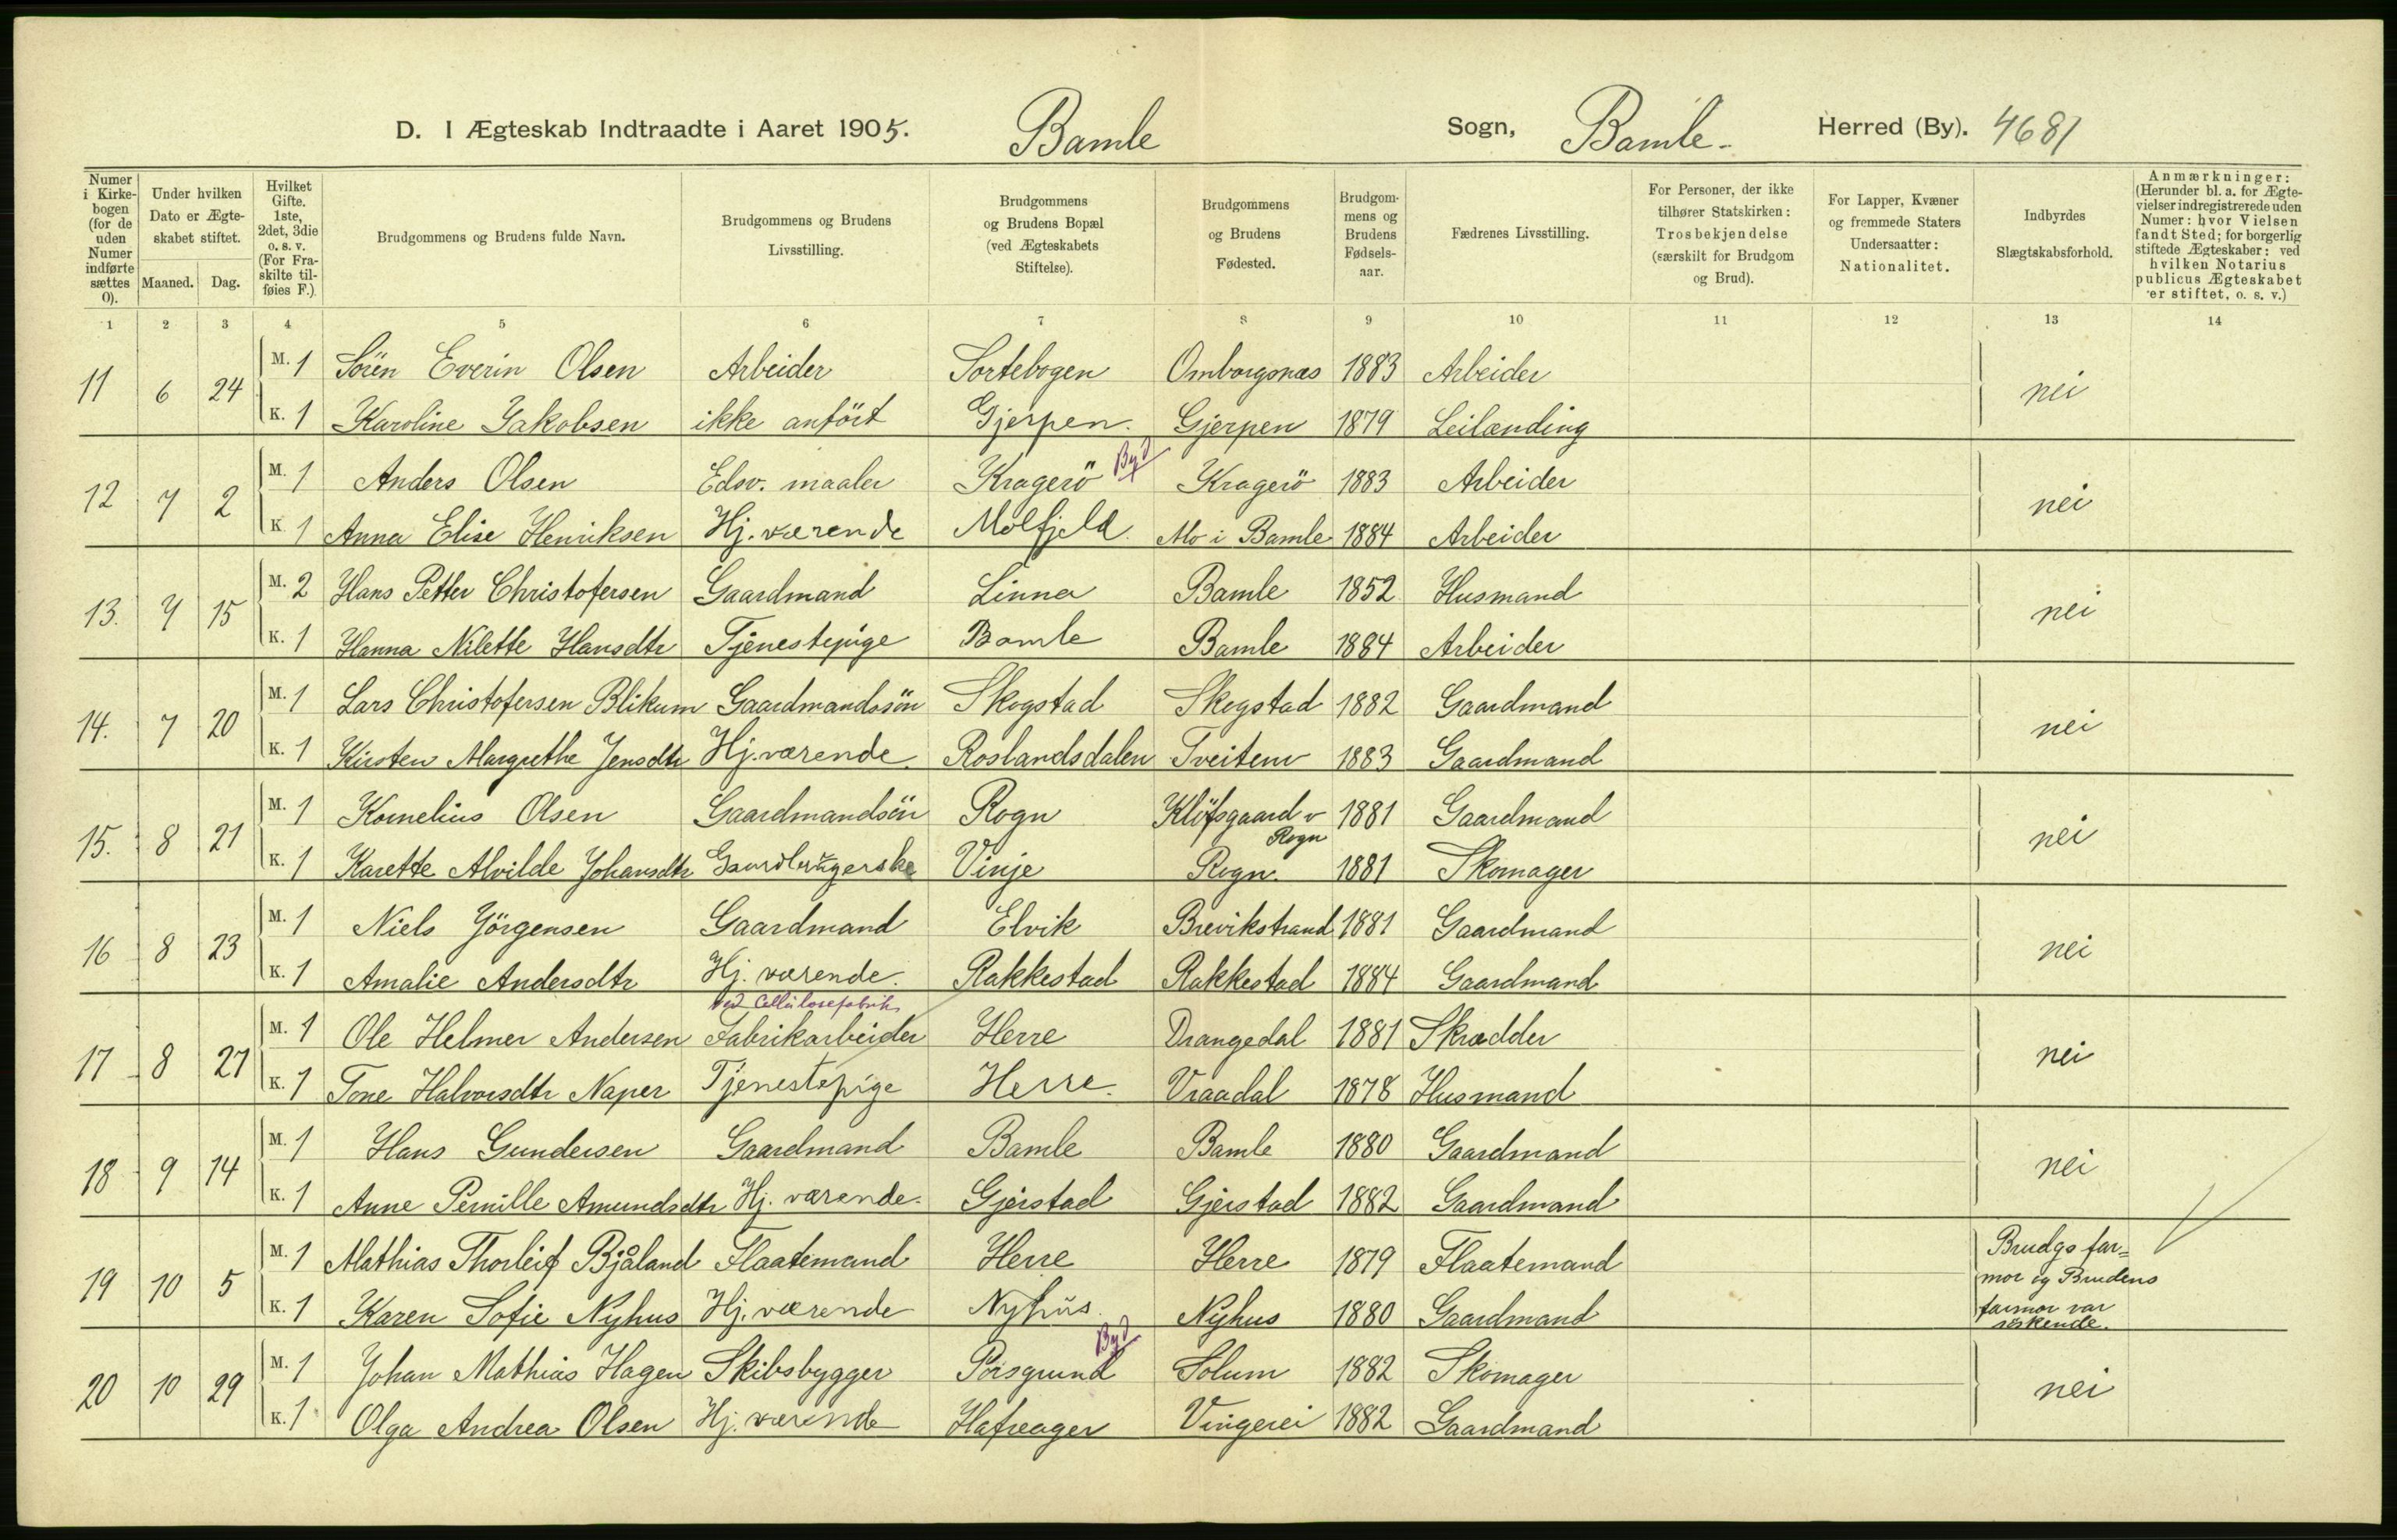 D. I Ægteskab Indtraadte i Aaret 1905. Bamle Sogn, Bamle. Herred (By). 4681
Numer i Kirkebogen (for de uden Numer indførte sættes 0).
Under hvilken Dato er Ægteskabet stiftet.
Maaned. Dag.
Hvilket Gifte. 1ste, 2det, 3die o. s. v. (For Fraskilte tilføies F.)
Brudgommens og Brudens fulde Navn.
Brudgommens og Brudens Livsstilling.
Brudgommens og Brudens Bopæl (ved Ægteskabets Stiftelse).
Brudgommens og Brudens Fødested.
Brudgommens og Brudens Fødselsaar.
Fædrenes Livsstilling.
For Personer, der ikke tilhører Statskirken: Trosbekjendelse (særskilt for Brudgom og Brud).
For Lapper, Kvæner og fremmede Staters Undersaatter: Nationalitet.
Indbyrdes Slægtskabsforhold.
Anmærkninger: (Herunder bl. a. for Ægtevielser indregistrerede uden Numer: hvor Vielsen fandt Sted; for borgerlig stiftede Ægteskaber: ved hvilken Notarius publicus Ægteskabet er stiftet, o. s. v.)
1 2 3 4 5 6 7 8 9 10 11 12 13 14
11 6 24 M. 1 Sören Everin Olsen Arbeider Sortebogen Omborgsnæs 1883 Arbeider nei
K. 1 Karoline Jakobsen ikke anfört Gjerpen. Gjerpen 1879 Leilænding
12 7 2 M. 1 Anders Olsen Edsv. maaler Kragerö Byd Kragerö 1883 Arbeider nei
K. 1 Anna Elise Henriksen Hj. værende Molfjeld. Mo i Bamle 1884 Arbeider
13. 7 15 M. 2 Hans Petter Christofersen Gaardmand Linna Bamle 1852 Husmand nei
K. 1 Hanna Nilette Hansdtr Tjenestepige Bamle Bamle 1884 Arbeider
14. 7 20 M. 1 Lars Christofersen Blikum Gaardmandssön Skogstad Skogstad 1882 Gaardmand nei
K. 1 Kirsten Margrethe Jensdtr Hj. værende. Roslandsdalen Tveiten 1883 Gaardmand
15. 8 21 M. 1 Kornelius Olsen Gaardmandsön Rogn Klöfsgaard v Rogn 1881 Gaardmand nei
K. 1 Karette Alvilde Johansdtr Gaardbrugerske Vinje Rogn. 1881 Skomager
16 8 23 M. 1 Niels Jörgensen Gaardmand Elvik Brevikstrand 1881 Gaardmand nei
K. 1 Amalie Andersdtr Hj. værende. Rakkestad Rakkestad 1884 Gaardmand
ved Cellulosefabrik
17 8 27 M. 1 Ole Helmer Andersen Fabrikarbeider Herre Drangedal 1881 Skrædder nei
K. 1 Tone Halvorsdtr Naper Tjenestepige Herre. Vraadal 1878 Husmand
18 9 14 M. 1 Hans Gundersen Gaardmand Bamle Bamle 1880 Gaardmand nei
K. 1 Anne Pernille Amundsdtr Hj. værende. Gjerstad Gjerstad 1882 Gaardmand
19 10 5 M. 1 Mathias Thorleif Bjåland Flaatemand Herre Herre 1879 Flaatemand Brudgs farmor og Brudens
K. 1 Karen Sofie Nyhus Hj. værende Nyhus. Nyhus 1880 Gaardmand farmor var söskende.
20 10 29 M. 1 Johan Mathias Hagen Skibsbygger Porsgrund Byd Solum 1882 Skomager nei
K. 1 Olga Andrea Olsen Hj. værende Hafreager Vingerei 1882 Gaardmand